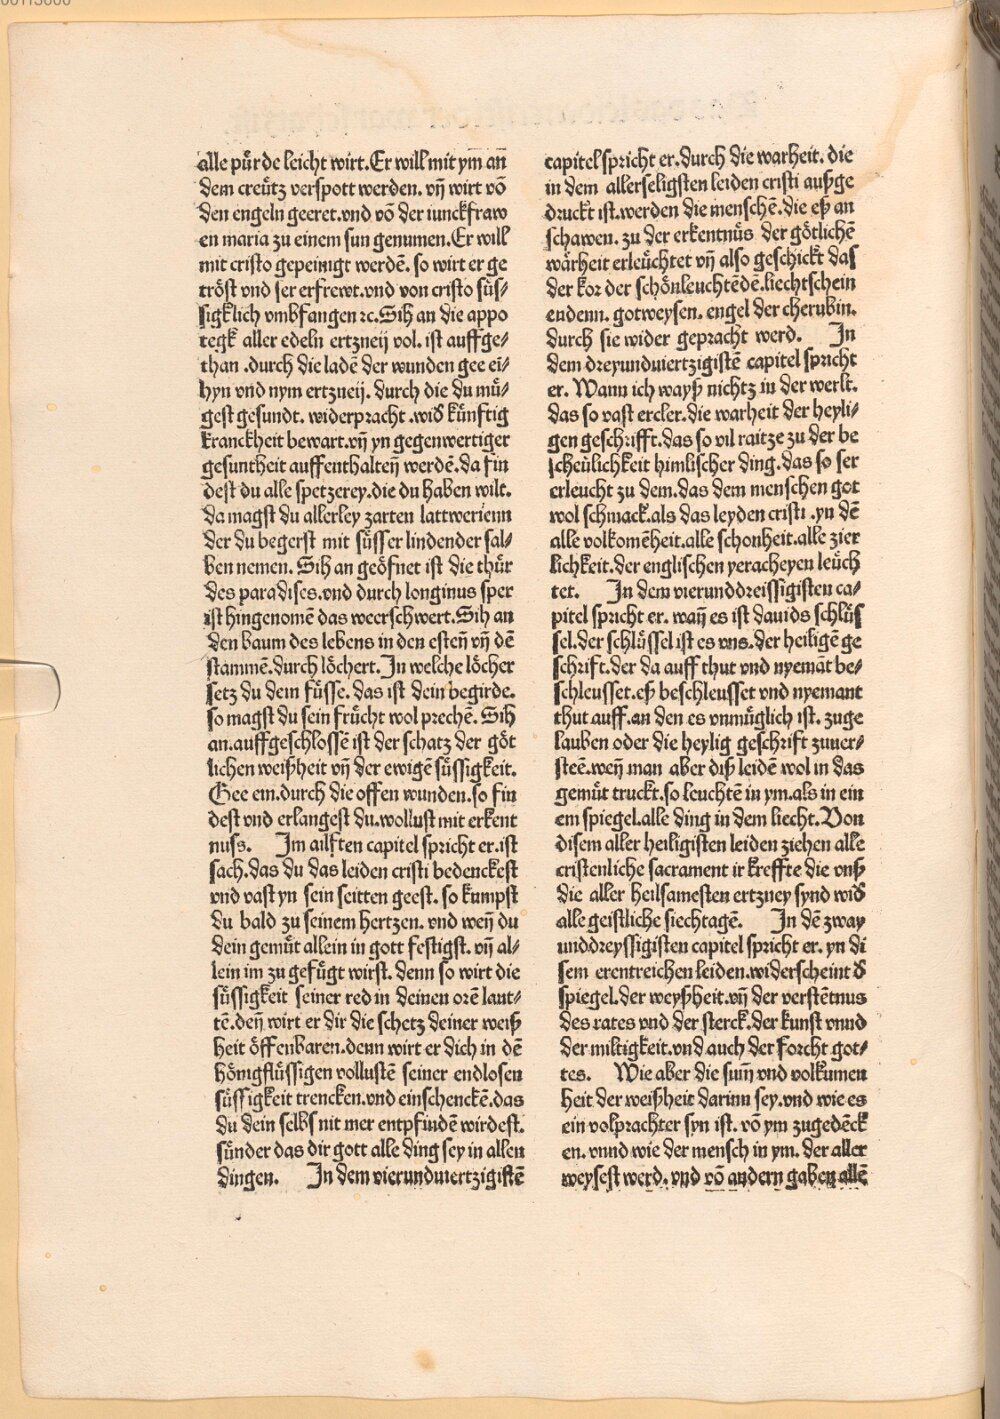 alle pürde leicht wirt. Er will mit ym an
dem creütz verspott werden. vñ wirt võ
den engeln geeret. vnd võ der iunckfraw
en maria zu einem sun genumen. Er will
mit cristo gepeinigt werdē. so wirt er ge
tröst vnd ser erfrewt. vnd von cristo süs⸗
sigklich vmbfangen ⁊c. Sih an die appo
tegk aller edeln ertzneij vol. ist auffge⸗
than .durch die ladē der wunden gee ei⸗
hyn vnd nym ertzneij. durch die du mü⸗
gest gesundt. widerpracht .wid̕ künftig
kranckheit bewart. vñ yn gegenwertiger
gesuntheit auffenthalten̄ werdē. da fin
dest du alle spetzerey. die du haben wilt.
da magst du allerley zarten lattwerienn
der du begerst mit süsser lindender sal⸗
ben nemen. Sih an geöfnet ist die thür
des paradises. vnd durch longinus sper
ist hingenomē das weerschwert. Sih an
den baum des lebens in den esten̄ vñ dē
stammē. durch löchert. In welche löcher
setz du dein füsse. das ist dein begirde.
so magst du sein frücht wol prechē. Sih
an. auffgeschlossē ist der schatz der göt
lichen weißheit vñ der ewigē süssigkeit.
Gee ein. durch die offen wunden. so fin
dest vnd erlangest du. wollust mit erkent
nuss. Im ailften capitel spricht er. ist
sach. das du das leiden cristi bedenckest
vnd vast yn sein seitten geest. so kumpst
du bald zu seinem hertzen. vnd wen̄ du
dein gemüt allein in gott festigst. vñ al⸗
lein im zu gefügt wirst. denn so wirt die
süssigkeit seiner red in deinen orē laut⸗
tē. den̄ wirt er dir die schetz deiner weiß
heit öffenbaren. denn wirt er dich in dē
hönigflüssigen vollustē seiner endlosen
süssigkeit trencken. vnd einschenckē. das
du dein selbs nit mer entpfindē wirdest.
sünder das dir gott alle ding sey in allen
dingen. In dem vierundviertzigistē
capitel spricht er. durch die warheit. die
in dem allerseligsten leiden cristi außge
druckt ist. werden die menschē. die eß an
schawen. zu der erkentnüs der götlichē
warheit erleüchtet vñ also geschickt das
der kor der schönleuchtēdē. liechtschein
endenn. gotweysen. engel der cherubin.
durch sie wider gepracht werd. In
dem dreyundviertzigistē capitel spricht
er. Wann ich wayß nichtz in der werlt.
das so vast ercler. die warheit der heyli⸗
gen geschrifft. das so vil raitze zu der be
scheülichkeit himlischer ding. das so ser
erleucht zu dem. das dem menschen got
wol schmack. als das leyden cristi .yn dē
alle volkomēheit. alle schonheit. alle zier
lichkeit. der englischen yeracheyen leüch
tet. In dem vierunddreissigisten ca⸗
pitel spricht er. wan̄ es ist dauids schlüs
sel. der schlüssel ist es vns. der heiligē ge
schrift. der da auff thut vnd nyemāt be⸗
schleusset. eß beschleusset vnd nyemant
thut auff. an den es vnmüglich ist. zuge
lauben oder die heylig geschrift zuuer⸗
steē. wen̄ man aber diß leidē wol in das
gemüt truckt. so leuchtē in ym. als in ein
em spiegel. alle ding in dem liecht. Von
disem aller heiligisten leiden ziehen alle
cristenliche sacrament ir kreffte die vnß
die aller heilsamesten ertzney synd wid̕
alle geistliche siechtagē. In dē zway
unddreyssigisten capitel spricht er. yn di
sem erentreichen leiden. widerscheint d̕
spiegel. der weyßheit. vñ der verstētnus
des rates vnd der sterck. der kunst vnnd
der miltigkeit. vnd auch der forcht got⸗
tes. Wie aber die sum̄ vnd volkumen
heit der weißheit darinn sey. vnd wie es
ein volprachter syn ist. võ ym zugedēck
en. vnnd wie der mensch in ym. der aller
weysest werd. vnd võ andern gaben allē